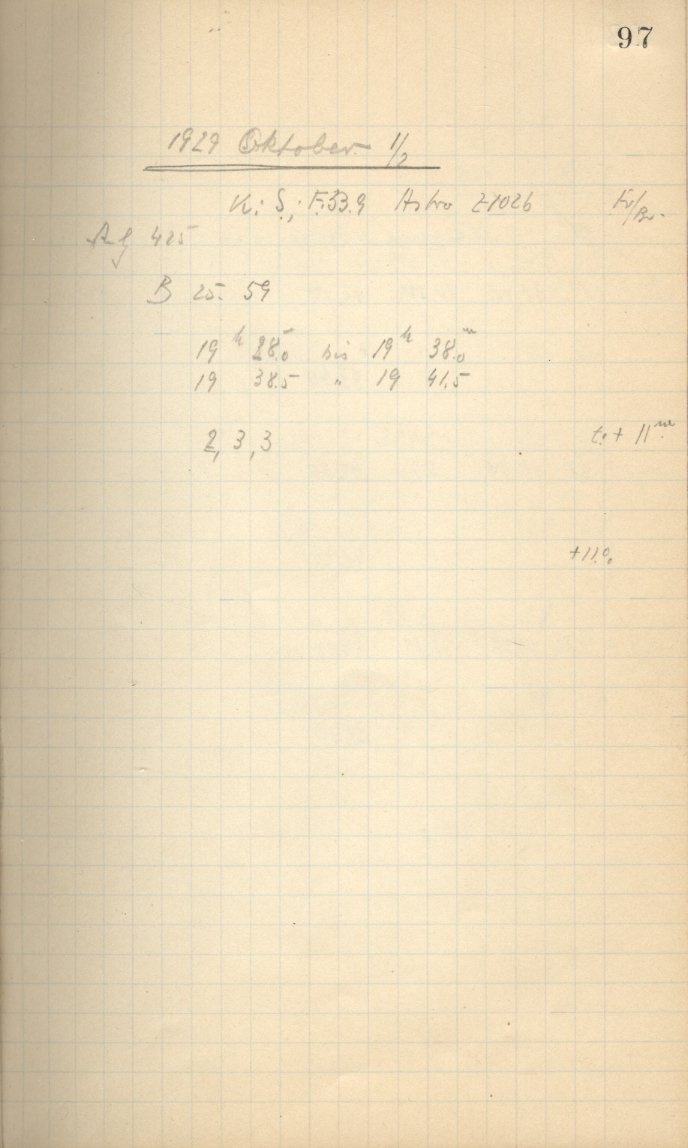 97
1929 Oktober 1/2
K: S.; F: 33.9 Astro Z1026 Fr/Br.
A.G 425
B 25. 59
19 h 28.0 m bis 19 h 38.0 m
19 38.5 " 19 41.5
2, 3, 3 t. + 11 m
+11.0